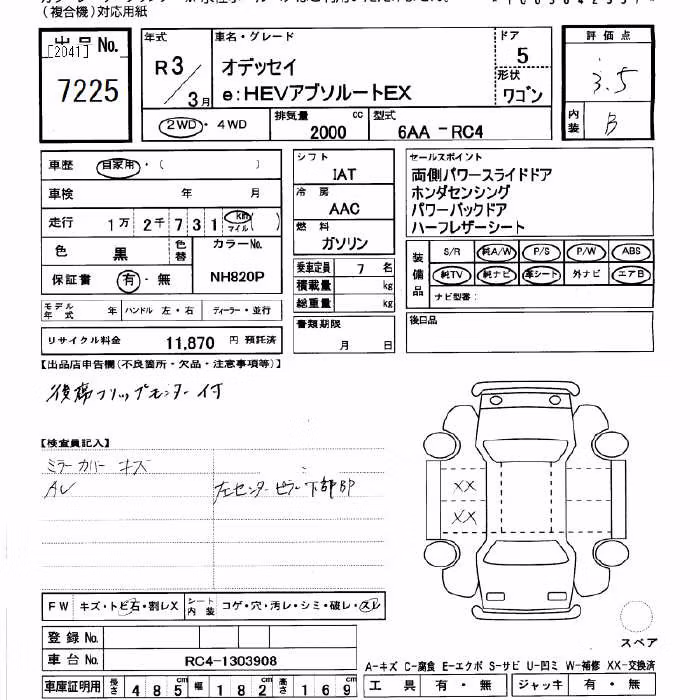 (複合機)対応用紙
出品No.
[2041]
7225
年式
R3/3月
車名・グレード
オデッセイ
e:HEVアブソルートEX
ドア
5
形状
ワゴン
2WD・4WD
排気量
2000 cc
型式
6AA-RC4
評価点
3.5
内装
B
車歴 自家用・( )
車検 年 月
走行 1万2千731 km マイル( )
色 黒
色替
カラーNo.
NH820P
保証書 有・無
モデル年式 年 ハンドル 左・右 ディーラー・並行
リサイクル料金 11,870 円 預託済
シフト
IAT
冷房
AAC
燃料
ガソリン
乗車定員 7 名
積載量 kg
総重量 kg
書類期限
月 日
セールスポイント
両側パワースライドドア
ホンダセンシング
パワーバックドア
ハーフレザーシート
装備品
S/R 純A/W P/S P/W ABS
純TV 純ナビ 革シート 外ナビ エアB
ナビ型番:
後日品
【出品店申告欄(不良箇所・欠品・注意事項等)】
後席フリップモニター付
【検査員記入】
ミラーカバー キズ
AW
左センターピラー下部BP
XX
XX
FW キズ・トビ石・割レX シート内装 コゲ・穴・汚レ・シミ・破レ・スレ
登録No.
車台No. RC4-1303908
車庫証明用 長さ 485cm 幅 182cm 高さ 169cm
スペア
A-キズ C-腐食 E-エクボ S-サビ U-凹ミ W-補修 XX-交換済
工具 有・無 ジャッキ 有・無